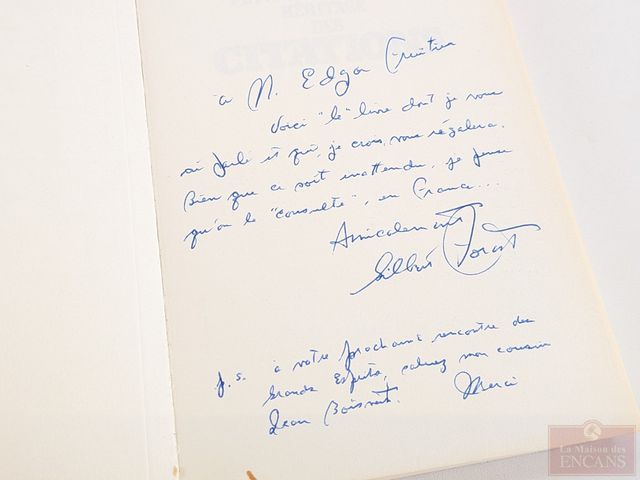 HÉRITAGE
DES
CITATIONS
à M. Edgar Fruitier
Voici "le" livre dont je vous
ai parlé et qui, je crois, vous régalera.
Bien que ce soit inattendu, je pense
qu'on le "consulte", en France...
Amicalement
Gilbert Forest
p.s. à votre prochaine rencontre des
Grands Esprits, saluez mon cousin
Jean Boisvert. Merci
La Maison des
ENCANS